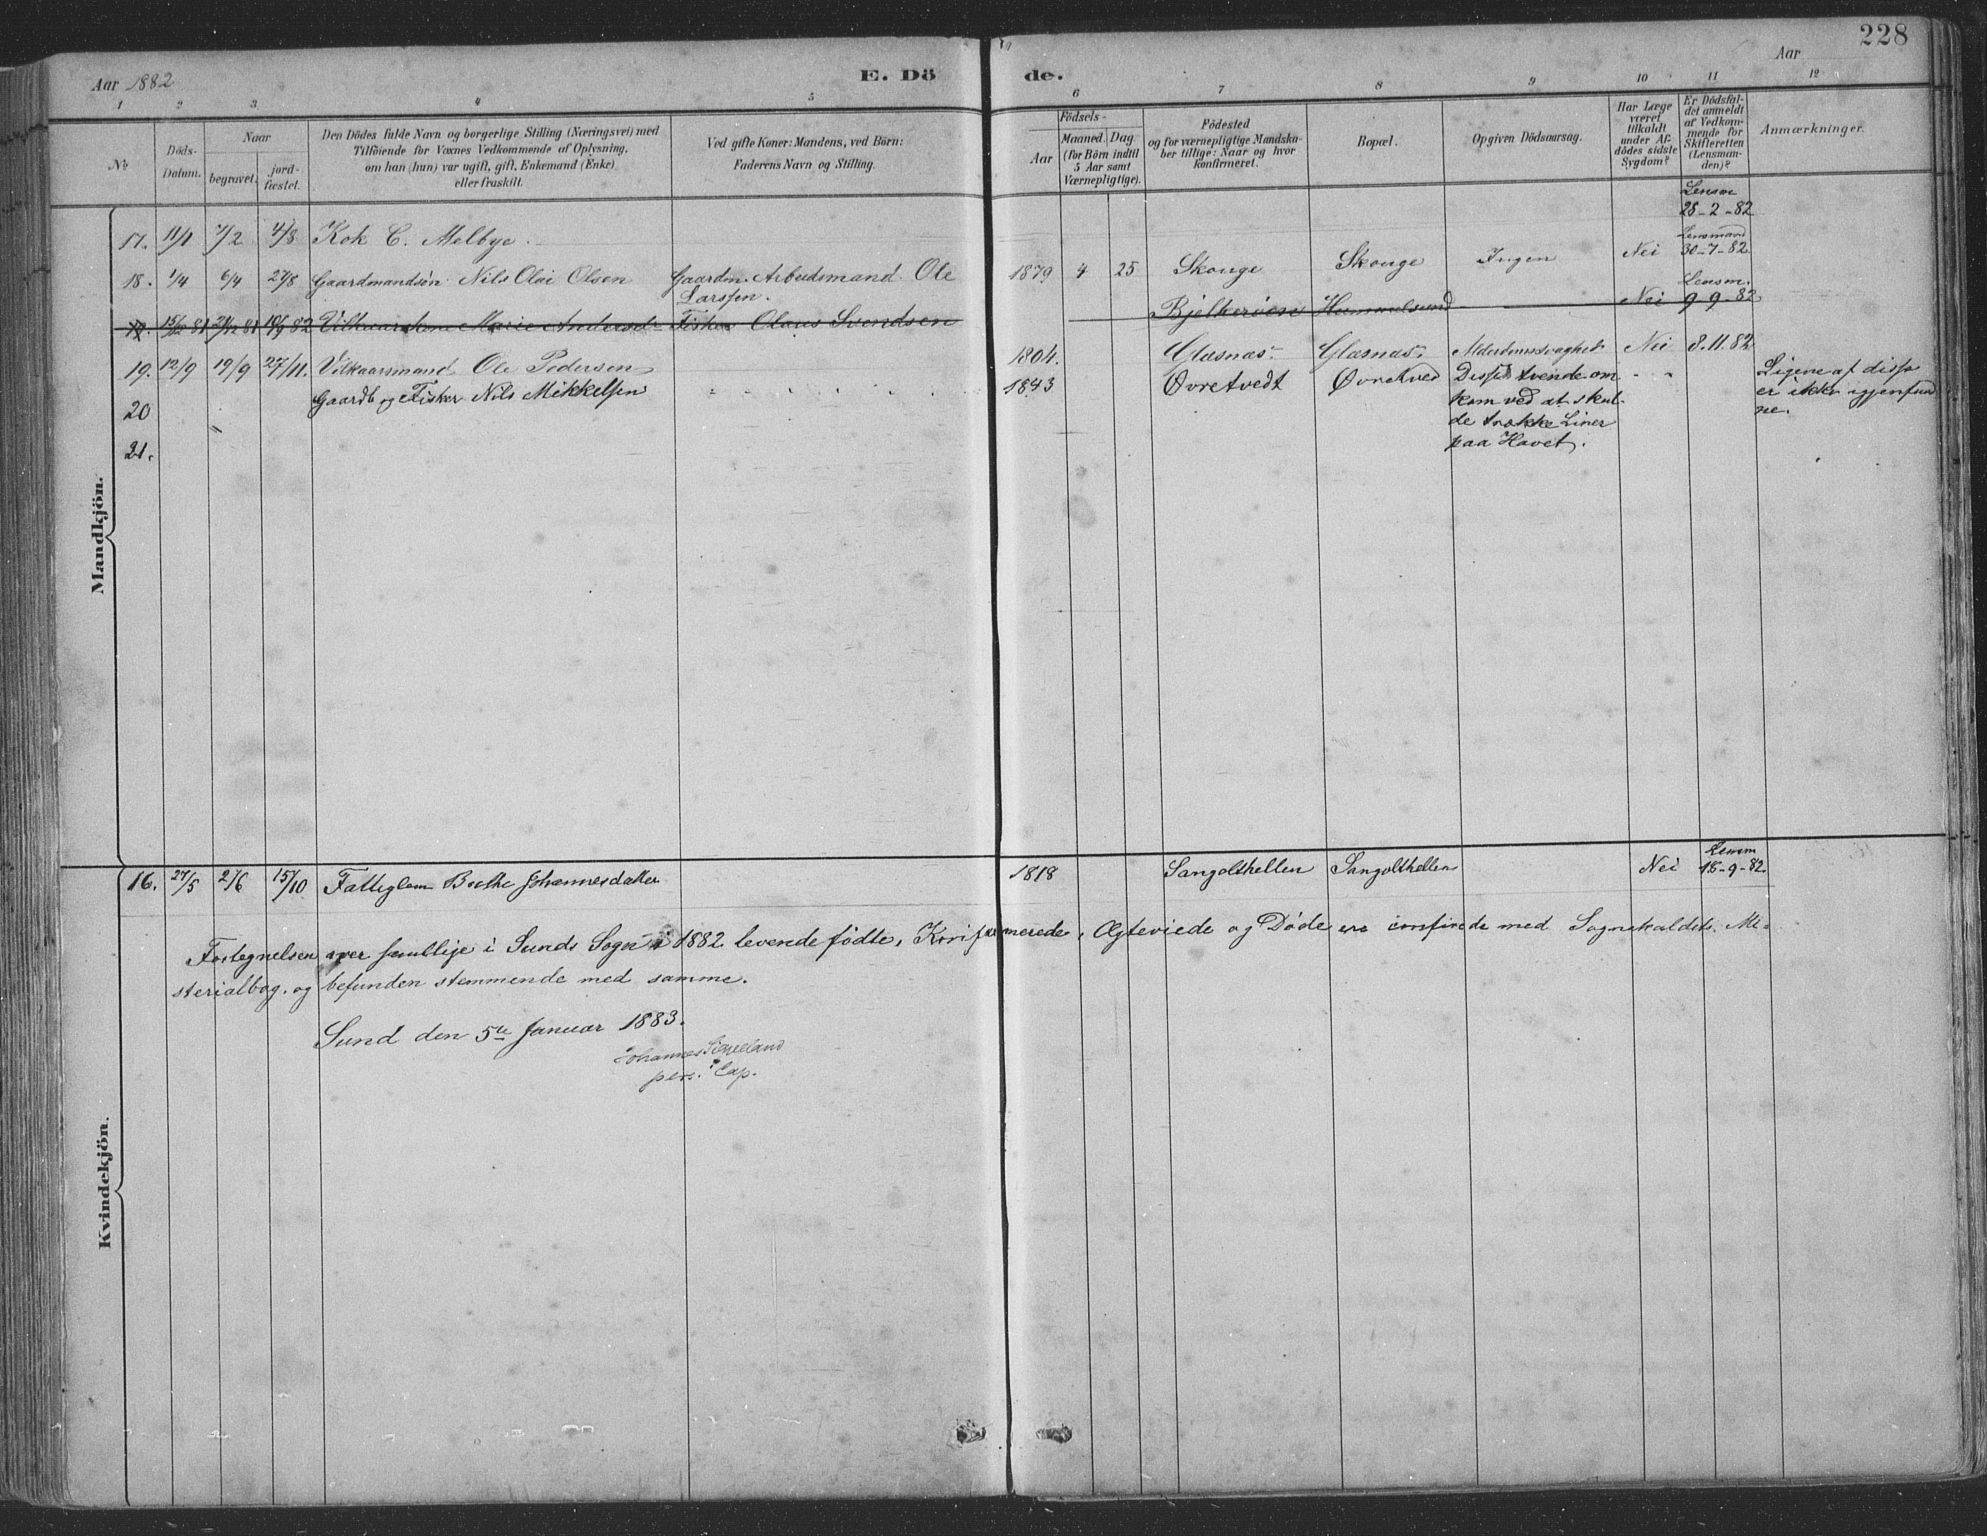 228
Aar 1882
E. Dö de.
Aar
1 2 3 4 5 6 7 8 9 10 11 12
No
Döds-Datum.
Naar
begravet.
jord-fæstet.
Den Dödes fulde Navn og borgerlige Stilling (Næringsvei) med
Tilföiende for Voxnes Vedkommende af Oplysning,
om han (hun) var ugift, gift, Enkemand (Enke)
eller fraskilt.
Ved gifte Koner: Mandens, ved Börn:
Faderens Navn og Stilling.
Födsels-
Aar
Maaned. Dag.
(for Börn indtil
5 Aar samt
Værnepligtige).
Födested
og for værnepligtige Mandska-
ber tillige: Naar og hvor
konfirmeret.
Bopæl.
Opgiven Dödsaarsag.
Har Læge
været
tilkaldt
under Af-
dödes sidste
Sygdom?
Er Dödsfal-
det anmeldt
af Vedkom-
mende for
Skifteretten
(Lensman-
den)?
Anmærkninger.
Mandkjön.
17. 11/1 7/2 4/8 Kok C. Melbye. Lensm 28-2-82
18. 1/4 6/4 27/8 Gaardmandsön Nils Olai Olsen Gaardm. Arbeidsmand Ole Larssen. 1879 4 25 Skouge Skouge Ingen Nei Lensmand 30-7-82
15/12 81 21/12 81 10/9 82 Vilkaarskone Marie Andersd. Fisker Olaus Svendsen Bjelkeröen Hummelsund Nei Lensm. 9-9-82
19. 12/9 19/9 27/11. Vilkaarsmand Ole Pedersen 1804. Glæsnæs Glæsnæs Alderdomssvaghed Nei 8.11.82
20 Gaardb og Fisker Nils Mikkelsen 1843 Øvretvedt Øvretved Disse tvende om
kom ved at skul
de trække Liner
paa Havet.
Ligene af disse
er ikke igjenfund
ne.
21.
Kvindekjön.
16. 27/5 2/6 15/10 Fattiglem Berthe Johannesdatter 1818 Sangolthellen Sangolthellen Nei Lensm 15-9-82
Fortegnelsen over samtlige i Sunds Sogn i 1882 levende födte, Konfirmerede, Ægteviede og Døde ere confirede med Sognekaldets Mi-
sterialbog og befunden stemmende med samme.
Sund den 5te Januar 1883.
Johannes
pers. Cap.